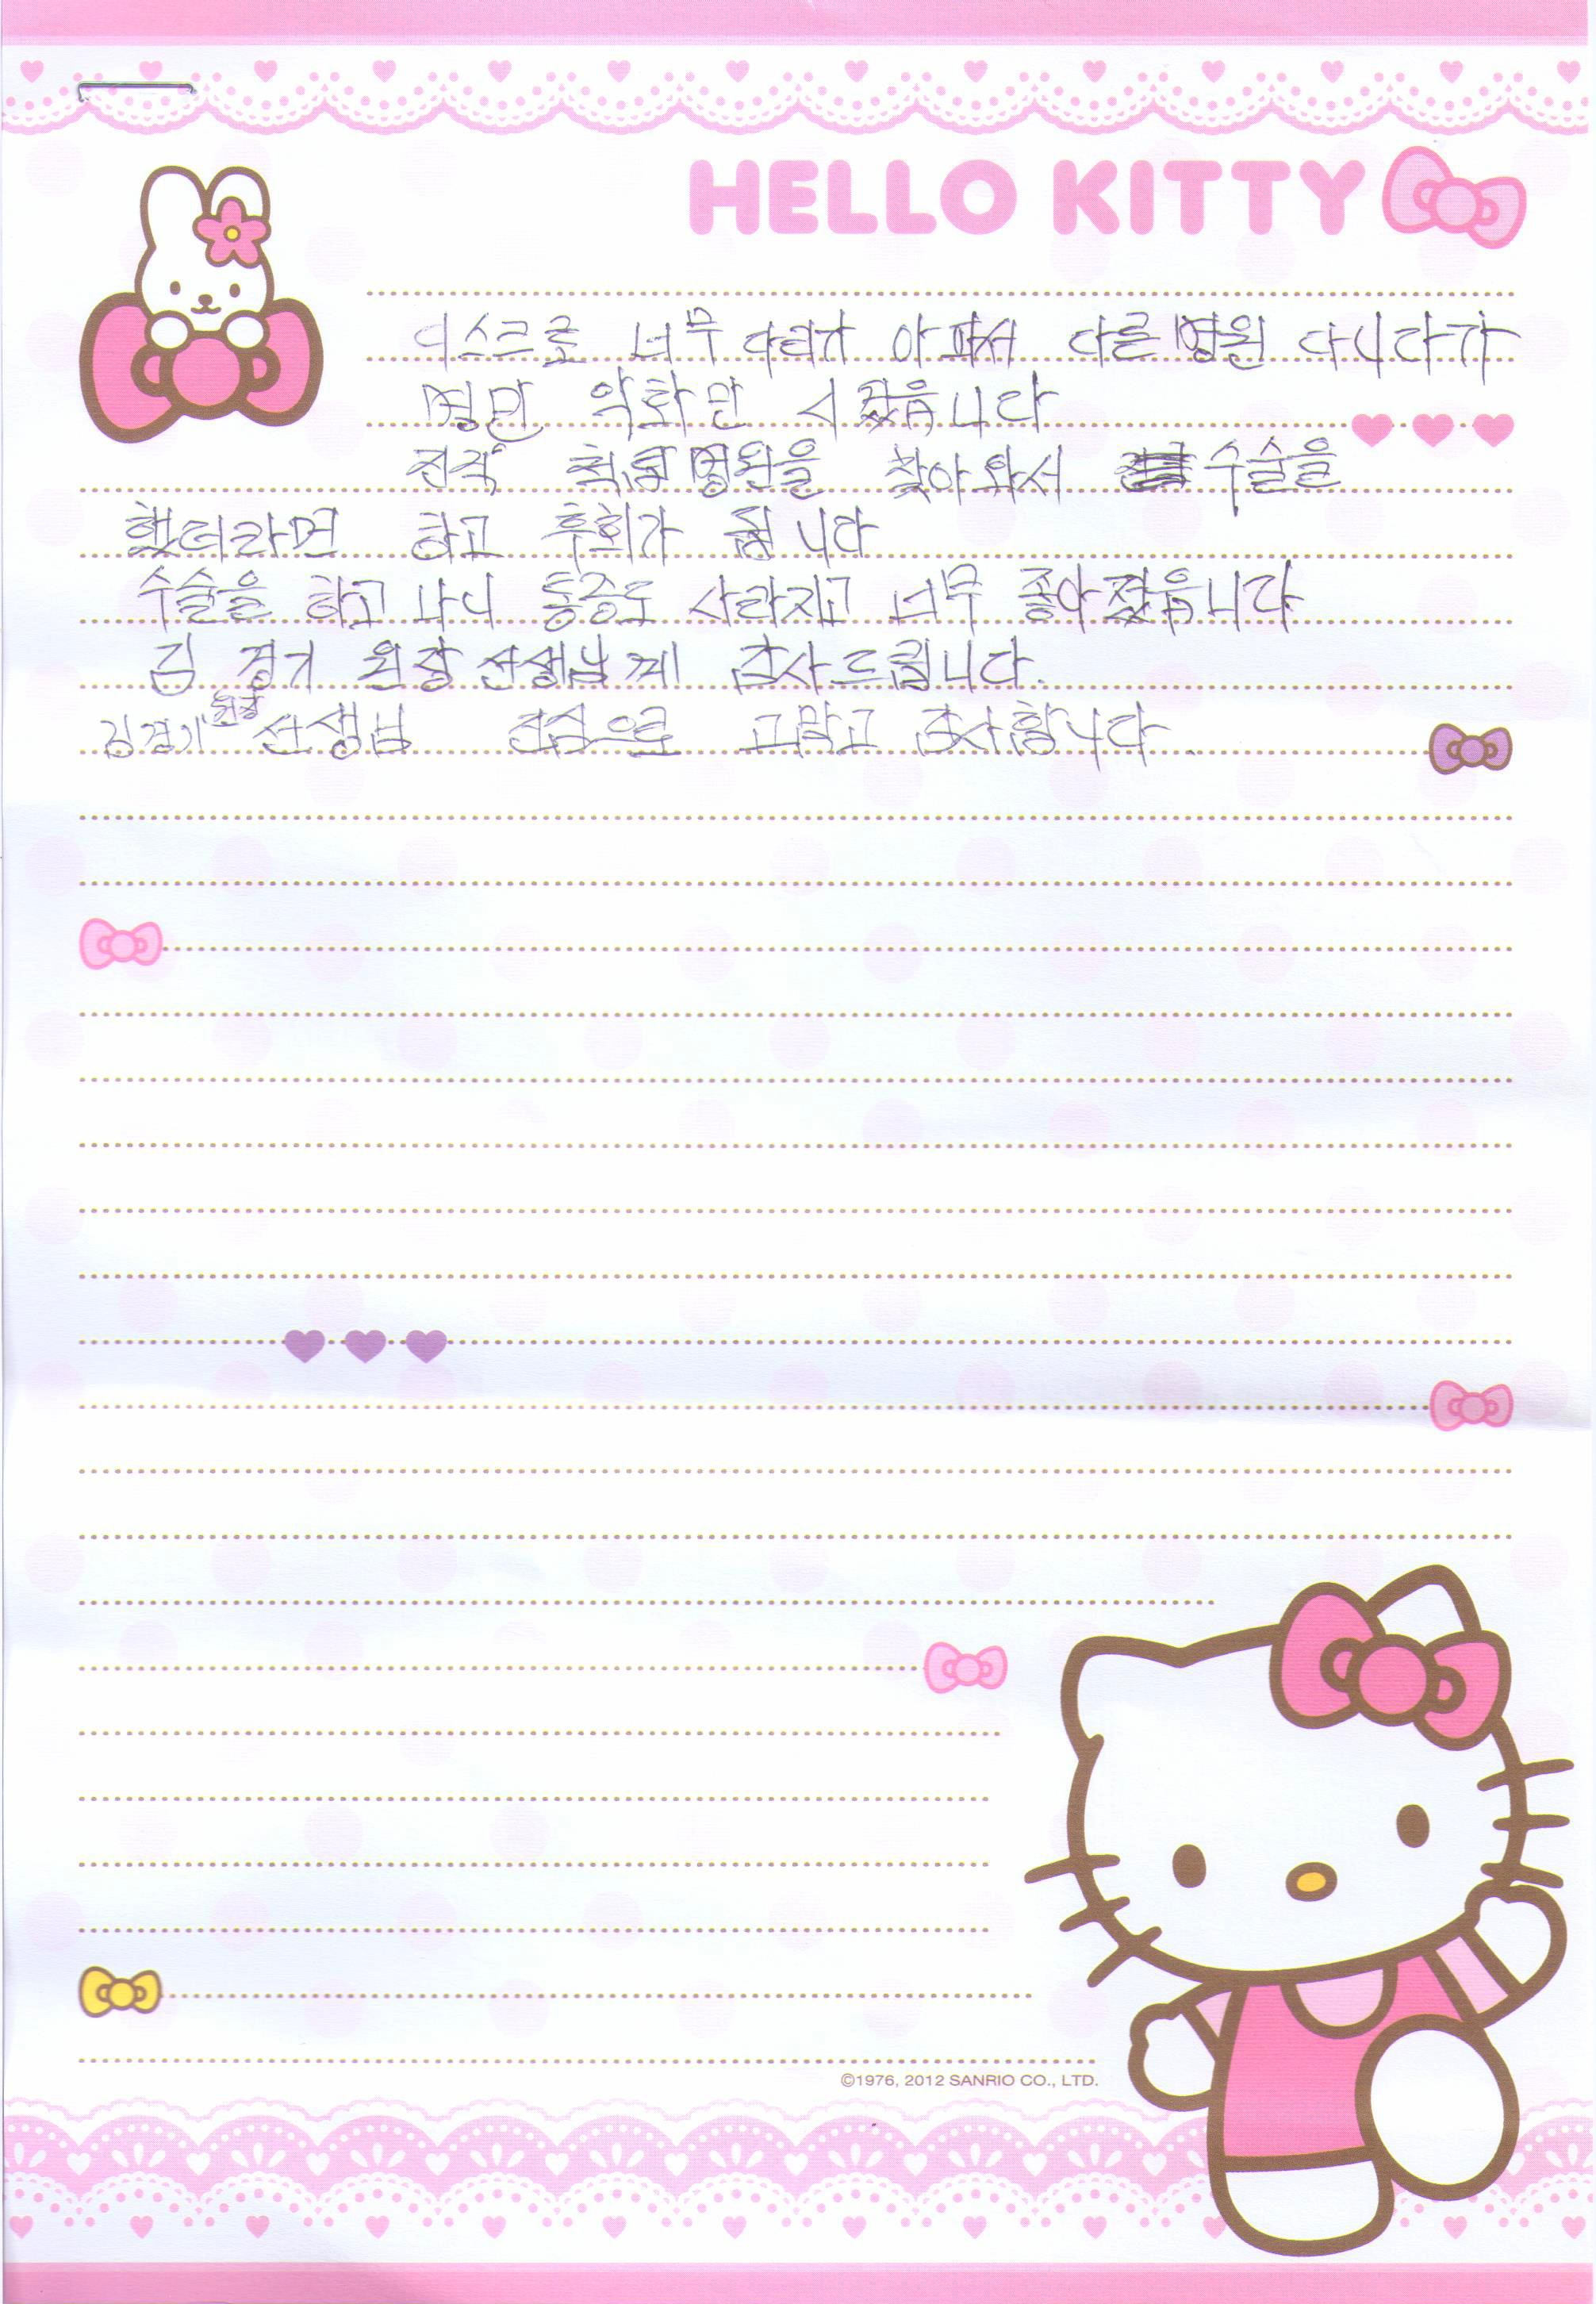 HELLO KITTY
디스크로 너무 다리가 아파서 다른병원 다니다가
병만 악화만 시켰읍니다
진작 척병원을 찾아와서 수술을
했더라면 하고 후회가 됩니다
수술을 하고 나니 통증도 사라지고 너무 좋아졌읍니다
김 경기 원장 선생님께 감사드립니다.
김경기 원장 선생님 진심으로 고맙고 감사합니다.
©1976, 2012 SANRIO CO., LTD.